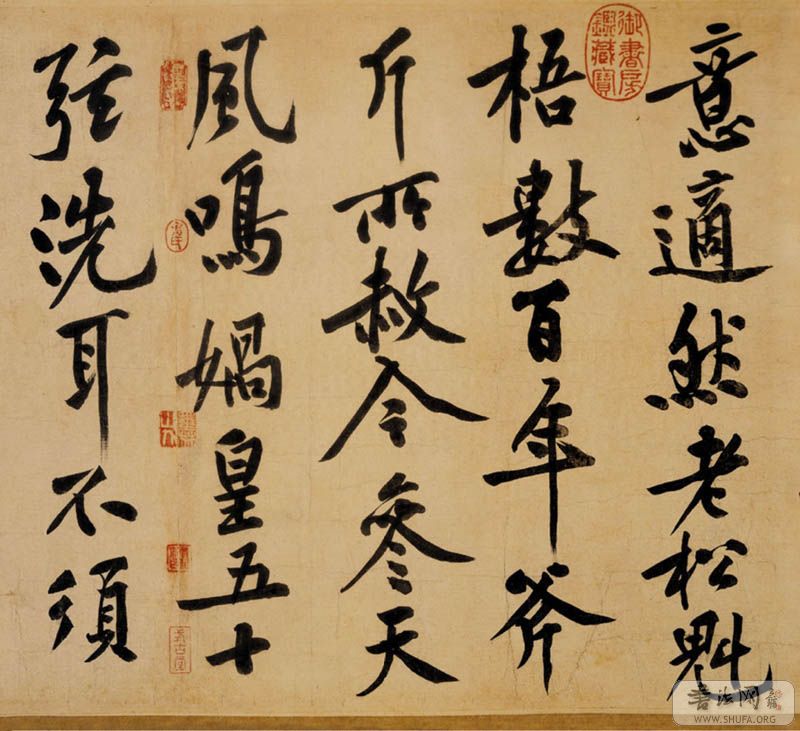 意適然老松魁
梧數百年斧
斤所赦今參天
風鳴媧皇五十
弦洗耳不須
御書房鑑藏寶
書法网
WWW.SHUFA.ORG